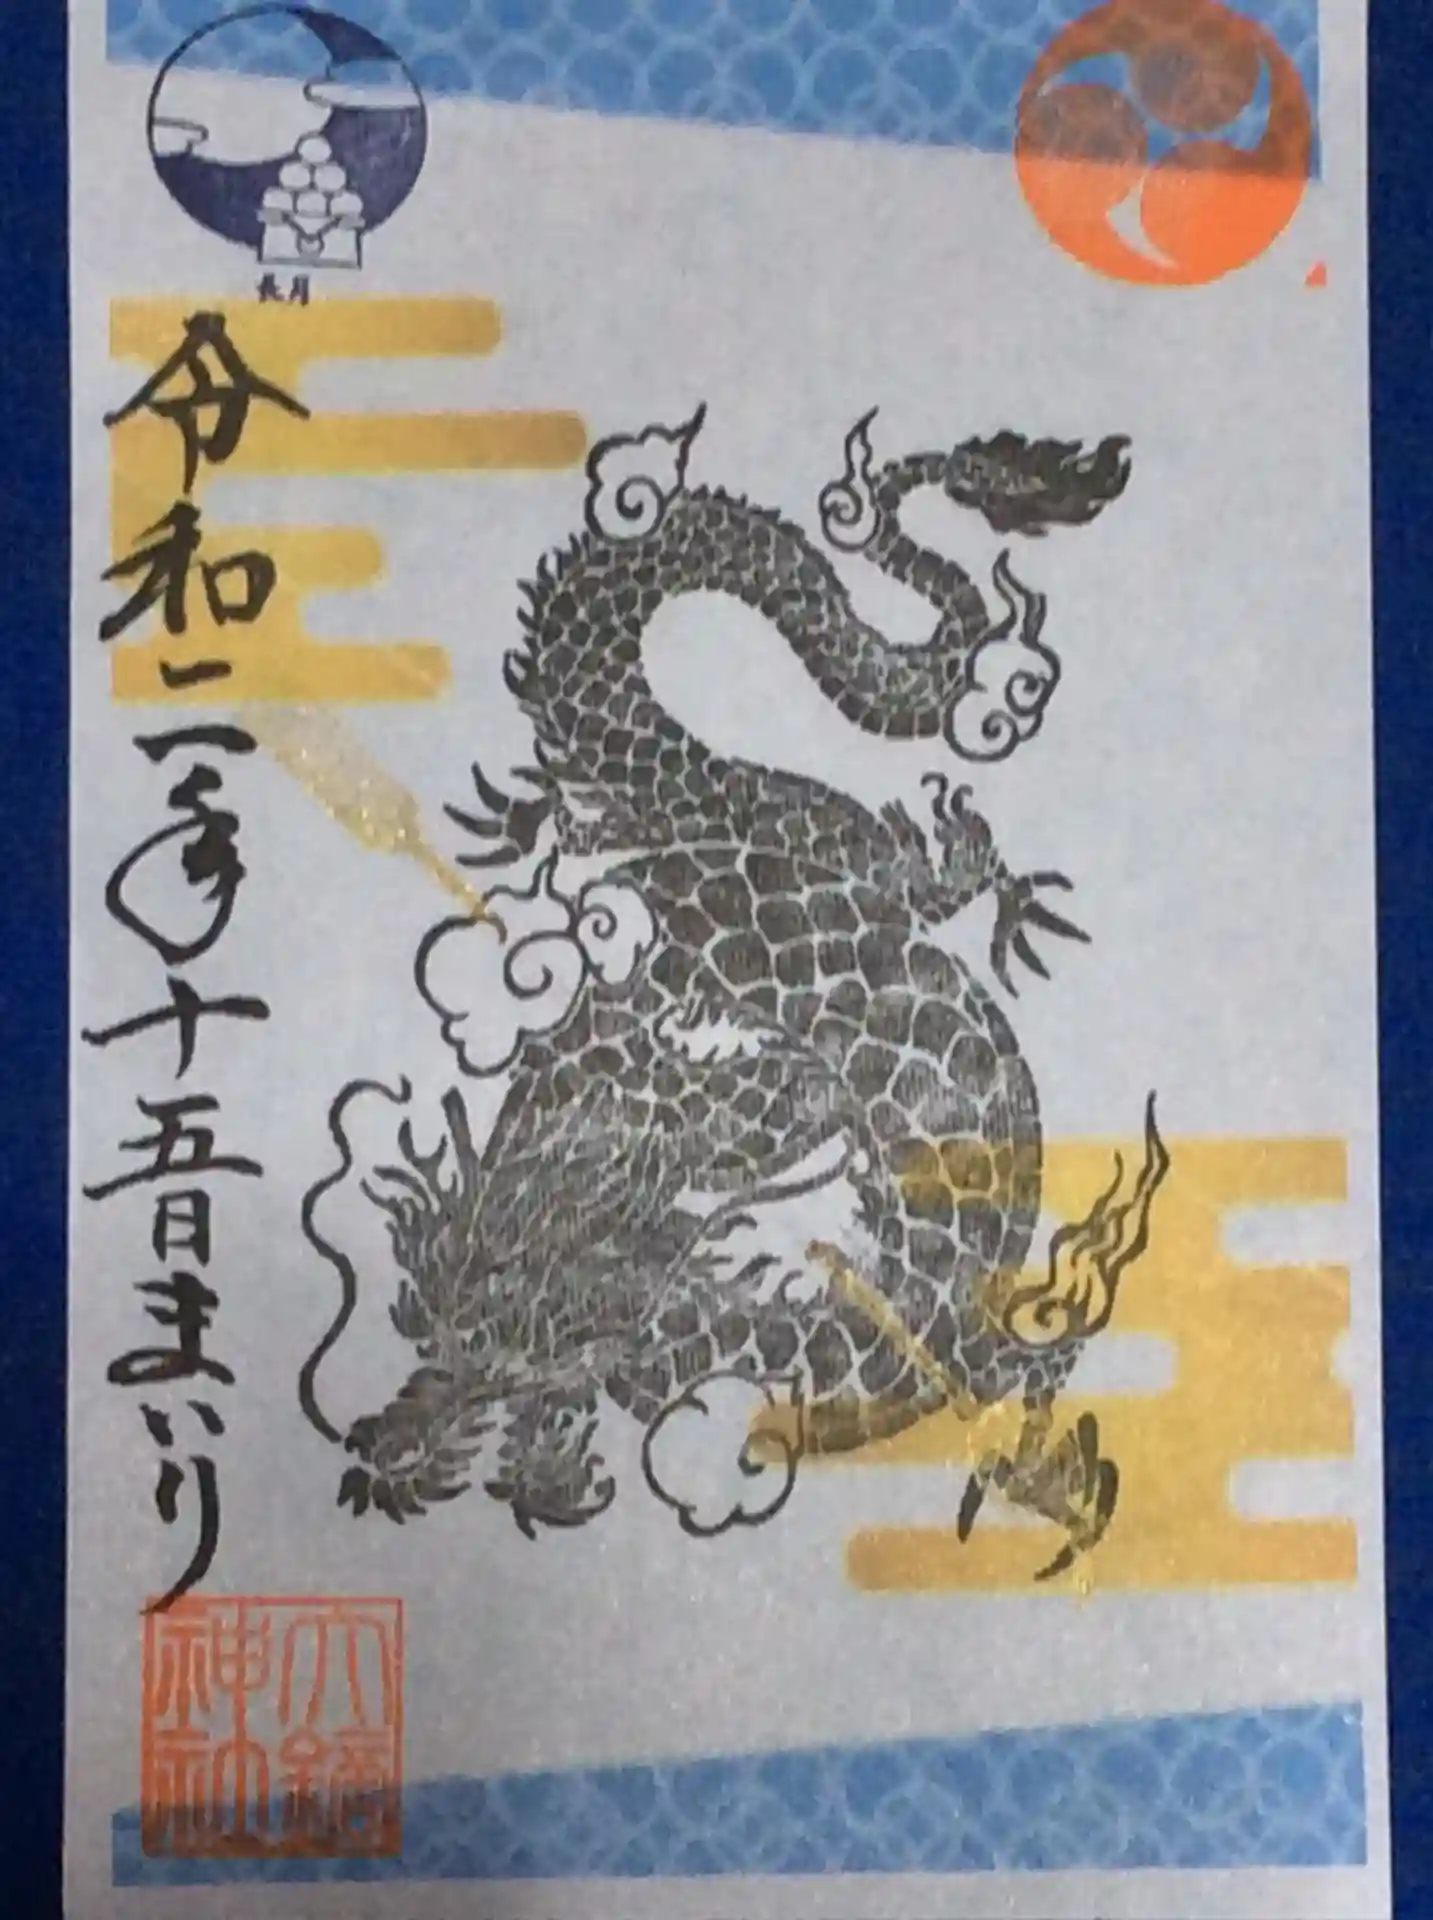 長月
令和二年十五日まいり
六鎬
神社